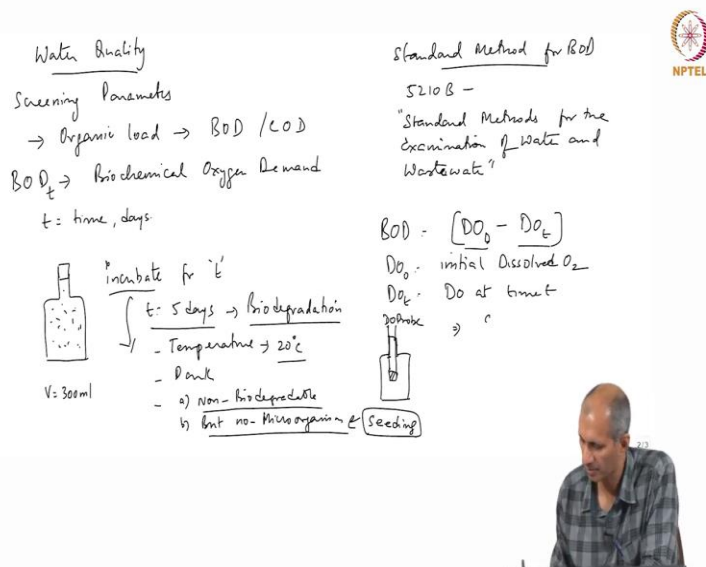 Water Quality
Screening Parameters
→ Organic load → BOD / COD
BODt → Biochemical Oxygen Demand
t = time, days
incubate for 't'
t = 5 days → Biodegradation
- Temperature → 20°C
- Dark
- a) Non-Biodegradable
b) But no-Microorganism ← Seeding
V = 300ml
Standard Method for BOD
5210B -
"Standard Methods for the
Examination of Water and
Wastewater"
BOD = [DO0 - DOt]
DO0 = initial Dissolved O2
DOt = DO at time t
DO Probe
⇒ C
NPTEL